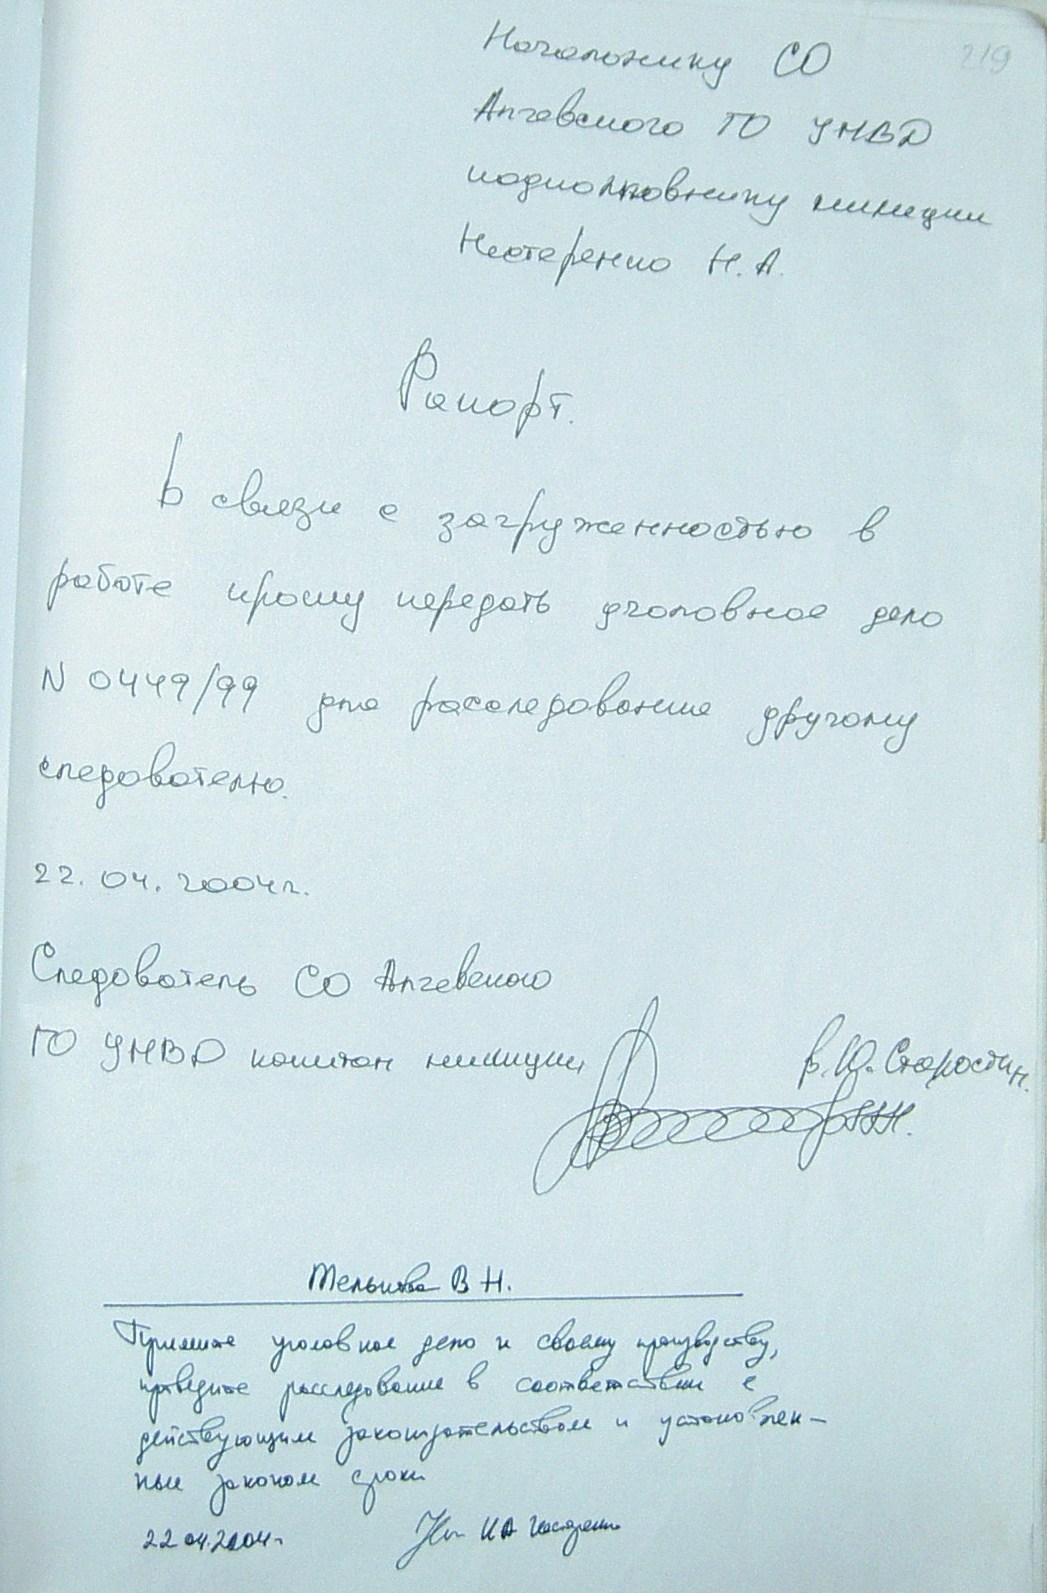 219
Начальнику СО
Алчевского ГО УМВД
подполковнику милиции
Нестеренко Н.А.
Рапорт.
В связи с загруженностью в
работе прошу передать уголовное дело
N 0449/99 для расследования другому
следователю.
22.04.2004г.
Следователь СО Алчевского
ГО УМВД капитан милиции В.Ю. Старостин.
В Н.
Примите уголовное дело к своему производству,
проведите расследование в соответствии с
действующим законодательством и установлен-
ные законом сроки
22.04.2004г. НА Нестеренко